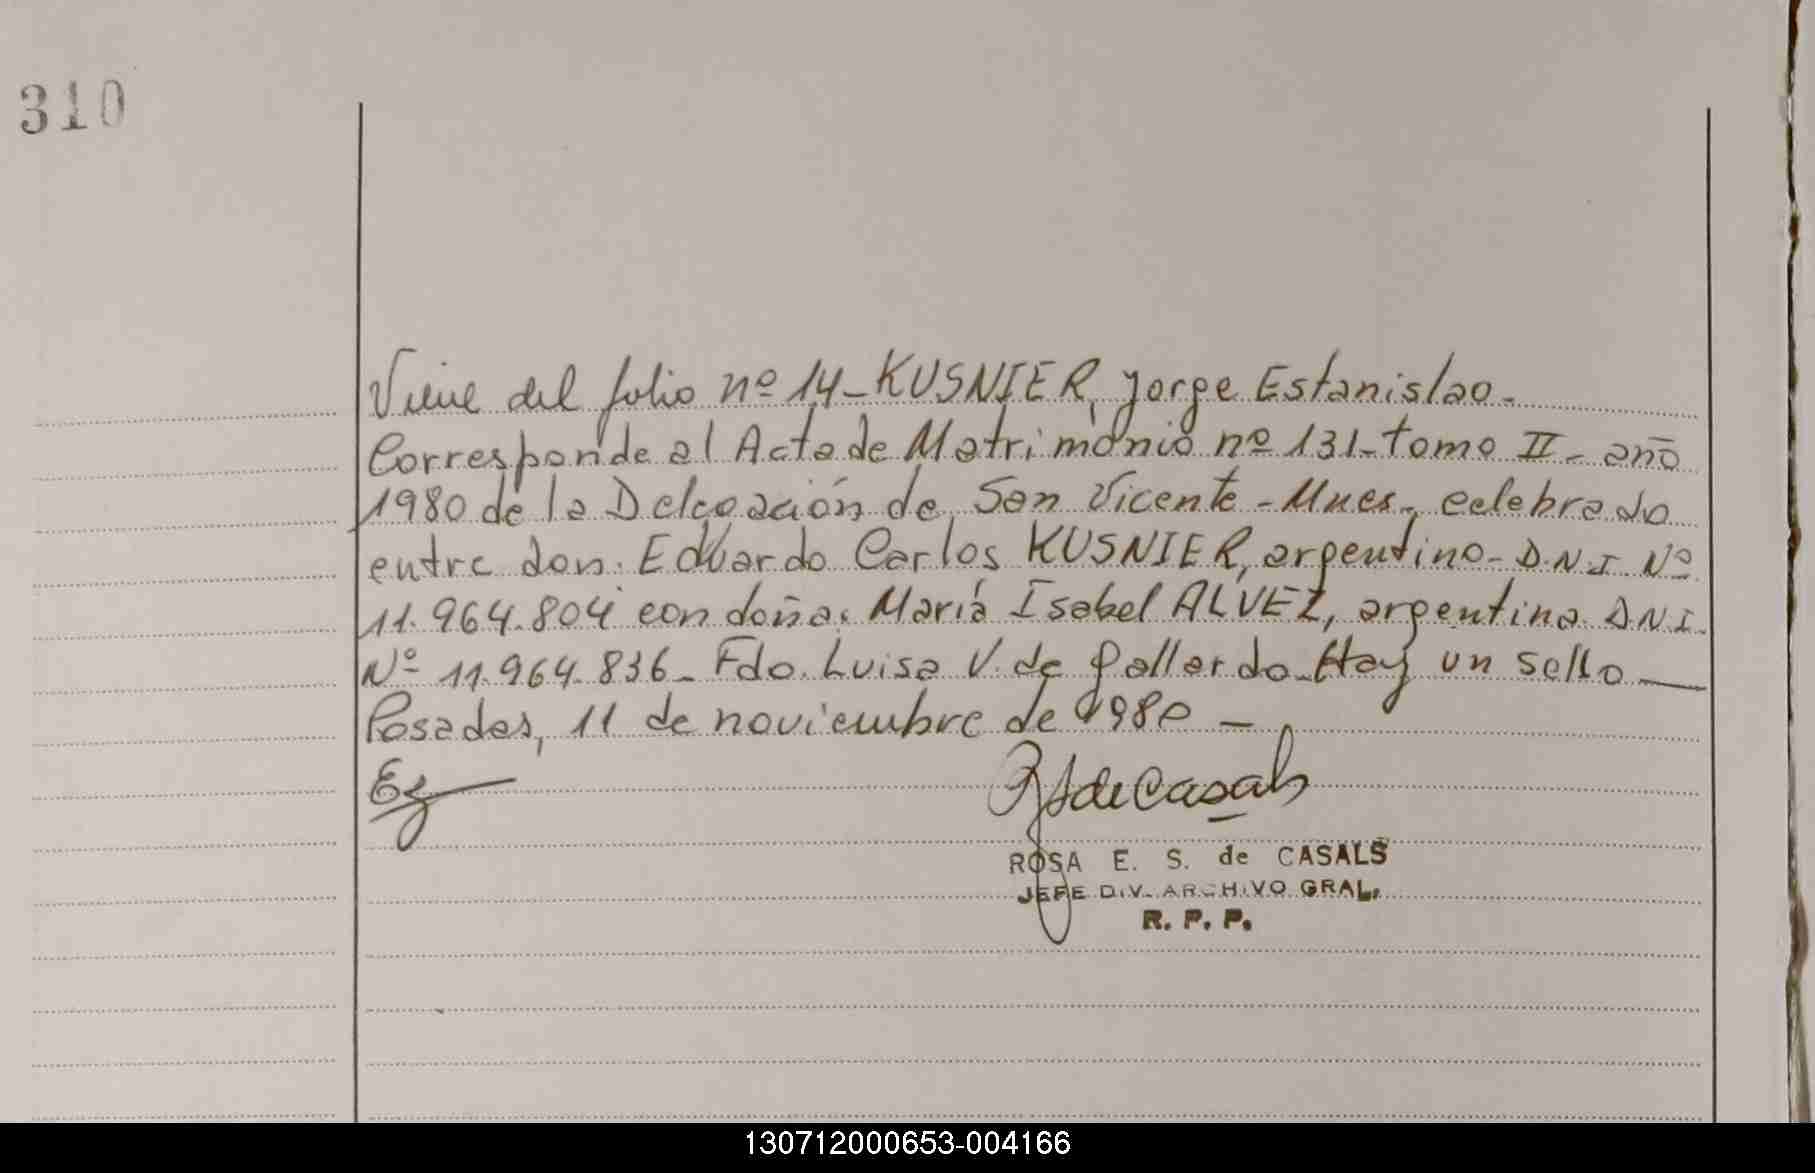 310
Viene del folio nº 14_ KUSNIER, Jorge Estanislao_
Corresponde al Acta de Matrimonio nº 131_ tomo II_ año
1980 de la Delegación de San Vicente - Mnes_, celebrado
entre don. Eduardo Carlos KUSNIER, argentino - D.N.I. Nº
11.964.804 con doña. María Isabel ALVEZ, argentina. D.N.I.
Nº 11.964.836_ Fdo. Luisa V. de Gallardo_ Hay un sello _
Posadas, 11 de noviembre de 1980 _
RSdeCasals
ROSA E. S. de CASALS
JEFE DIV. ARCHIVO GRAL.
R. P. P.
130712000653-004166